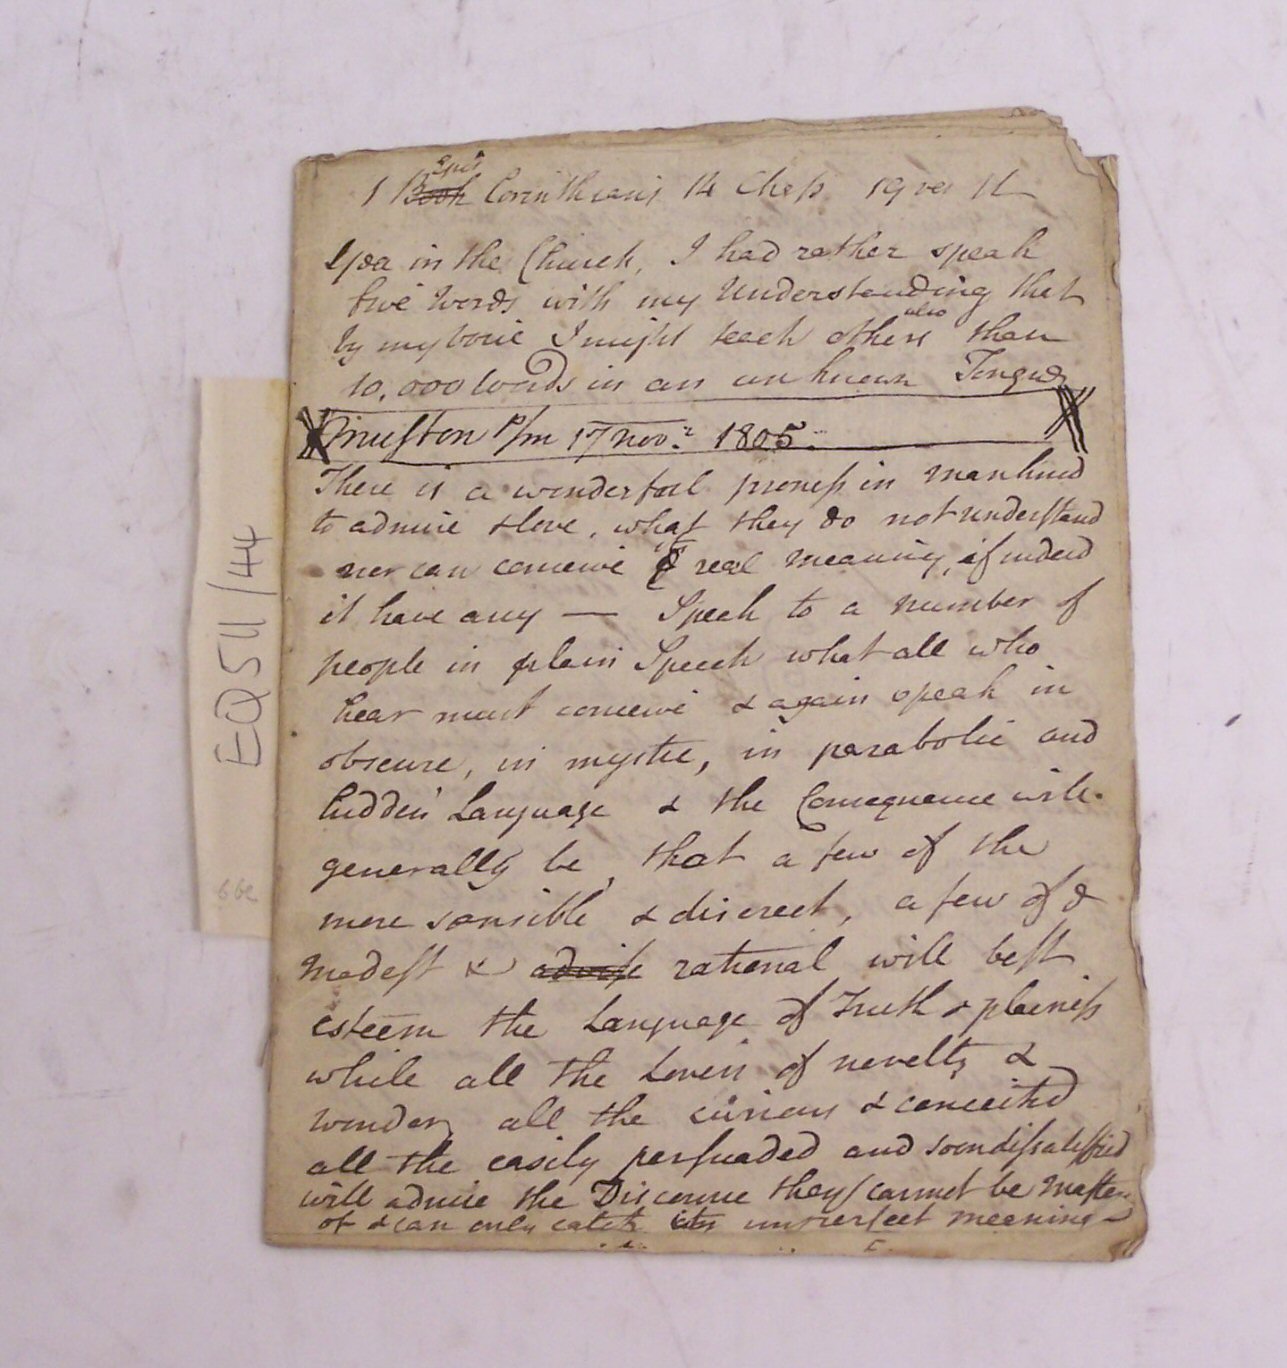 Epis
1 Book Corinthians 14 Chap. 19 ver
Yea in the Church, I had rather speak
five Words with my Understanding that
by my voice I might teach others also than
10,000 Words in an unknown Tongue
Muston P/m 17 Nov.r 1805.
There is a wonderful proness in Mankind
to admire & love, what they do not understand
nor can conceive real meaning, if indeed
it have any — Speak to a number of
people in plain Speech what all who
hear must conceive & again speak in
obscure, in mystic, in parabolic and
hidden Language & the Consequence will
generally be, that a few of the
more sensible & discreet, a few of
Modest & rational will best
esteem the Language of Truth & plainess
while all the Lovers of novelty &
wonder, all the curious & conceited
all the easily persuaded and soon dissatisfied
will admire the Discourse they cannot be Masters
of & can only catch its imperfect meening
EQ5U/44